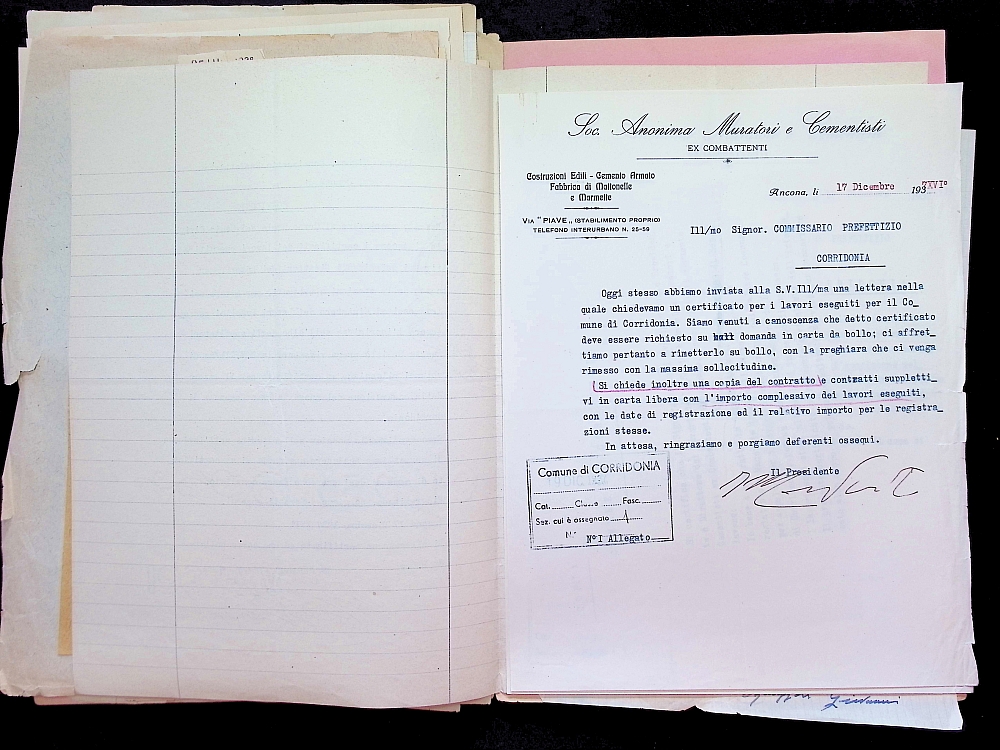 Soc. Anonima Muratori e Cementisti
EX COMBATTENTI
Costruzioni Edili - Cemento Armato
Fabbrica di Mattonelle
e Marmette
VIA " PIAVE „ (STABILIMENTO PROPRIO)
TELEFONO INTERURBANO N. 25-59
Ancona, li 17 Dicembre 1937XVI°
Ill/mo Signor. COMMISSARIO PREFETTIZIO
CORRIDONIA
Oggi stesso abbiamo inviata alla S.V.Ill/ma una lettera nella
quale chiedevamo un certificato per i lavori eseguiti per il Co_
mune di Corridonia. Siamo venuti a canoscenza che detto certificato
deve essere richiesto su domanda in carta da bollo; ci affret_
tiamo pertanto a rimetterlo su bollo, con la preghiara che ci venga
rimesso con la massima sollecitudine.
Si chiede inoltre una copia del contratto e contratti suppletti_
vi in carta libera con l'importo complessivo dei lavori eseguiti,
con le date di registrazione ed il relativo importo per le registra_
zioni stesse.
In attesa, ringraziamo e porgiamo deferenti ossequi.
Il Presidente
Comune di CORRIDONIA
Cat. Classe Fasc.
Sez. cui è assegnato
N° I Allegato